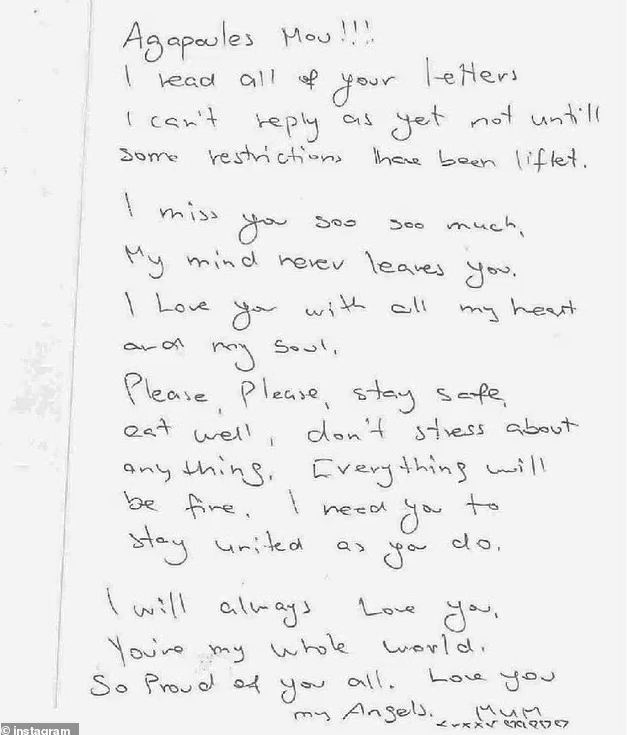 Agapoules Mou!!!
I read all of your letters
I can't reply as yet not untill
some restrictions have been liftet.
I miss you soo soo much,
My mind never leaves you.
I Love you with all my heart
and my soul.
Please, Please, stay safe,
eat well, don't stress about
anything. Everything will
be fine. I need you to
stay united as you do.
I will always Love you,
You're my whole world.
So Proud of you all. Love you
my Angels. MUM
© instagram